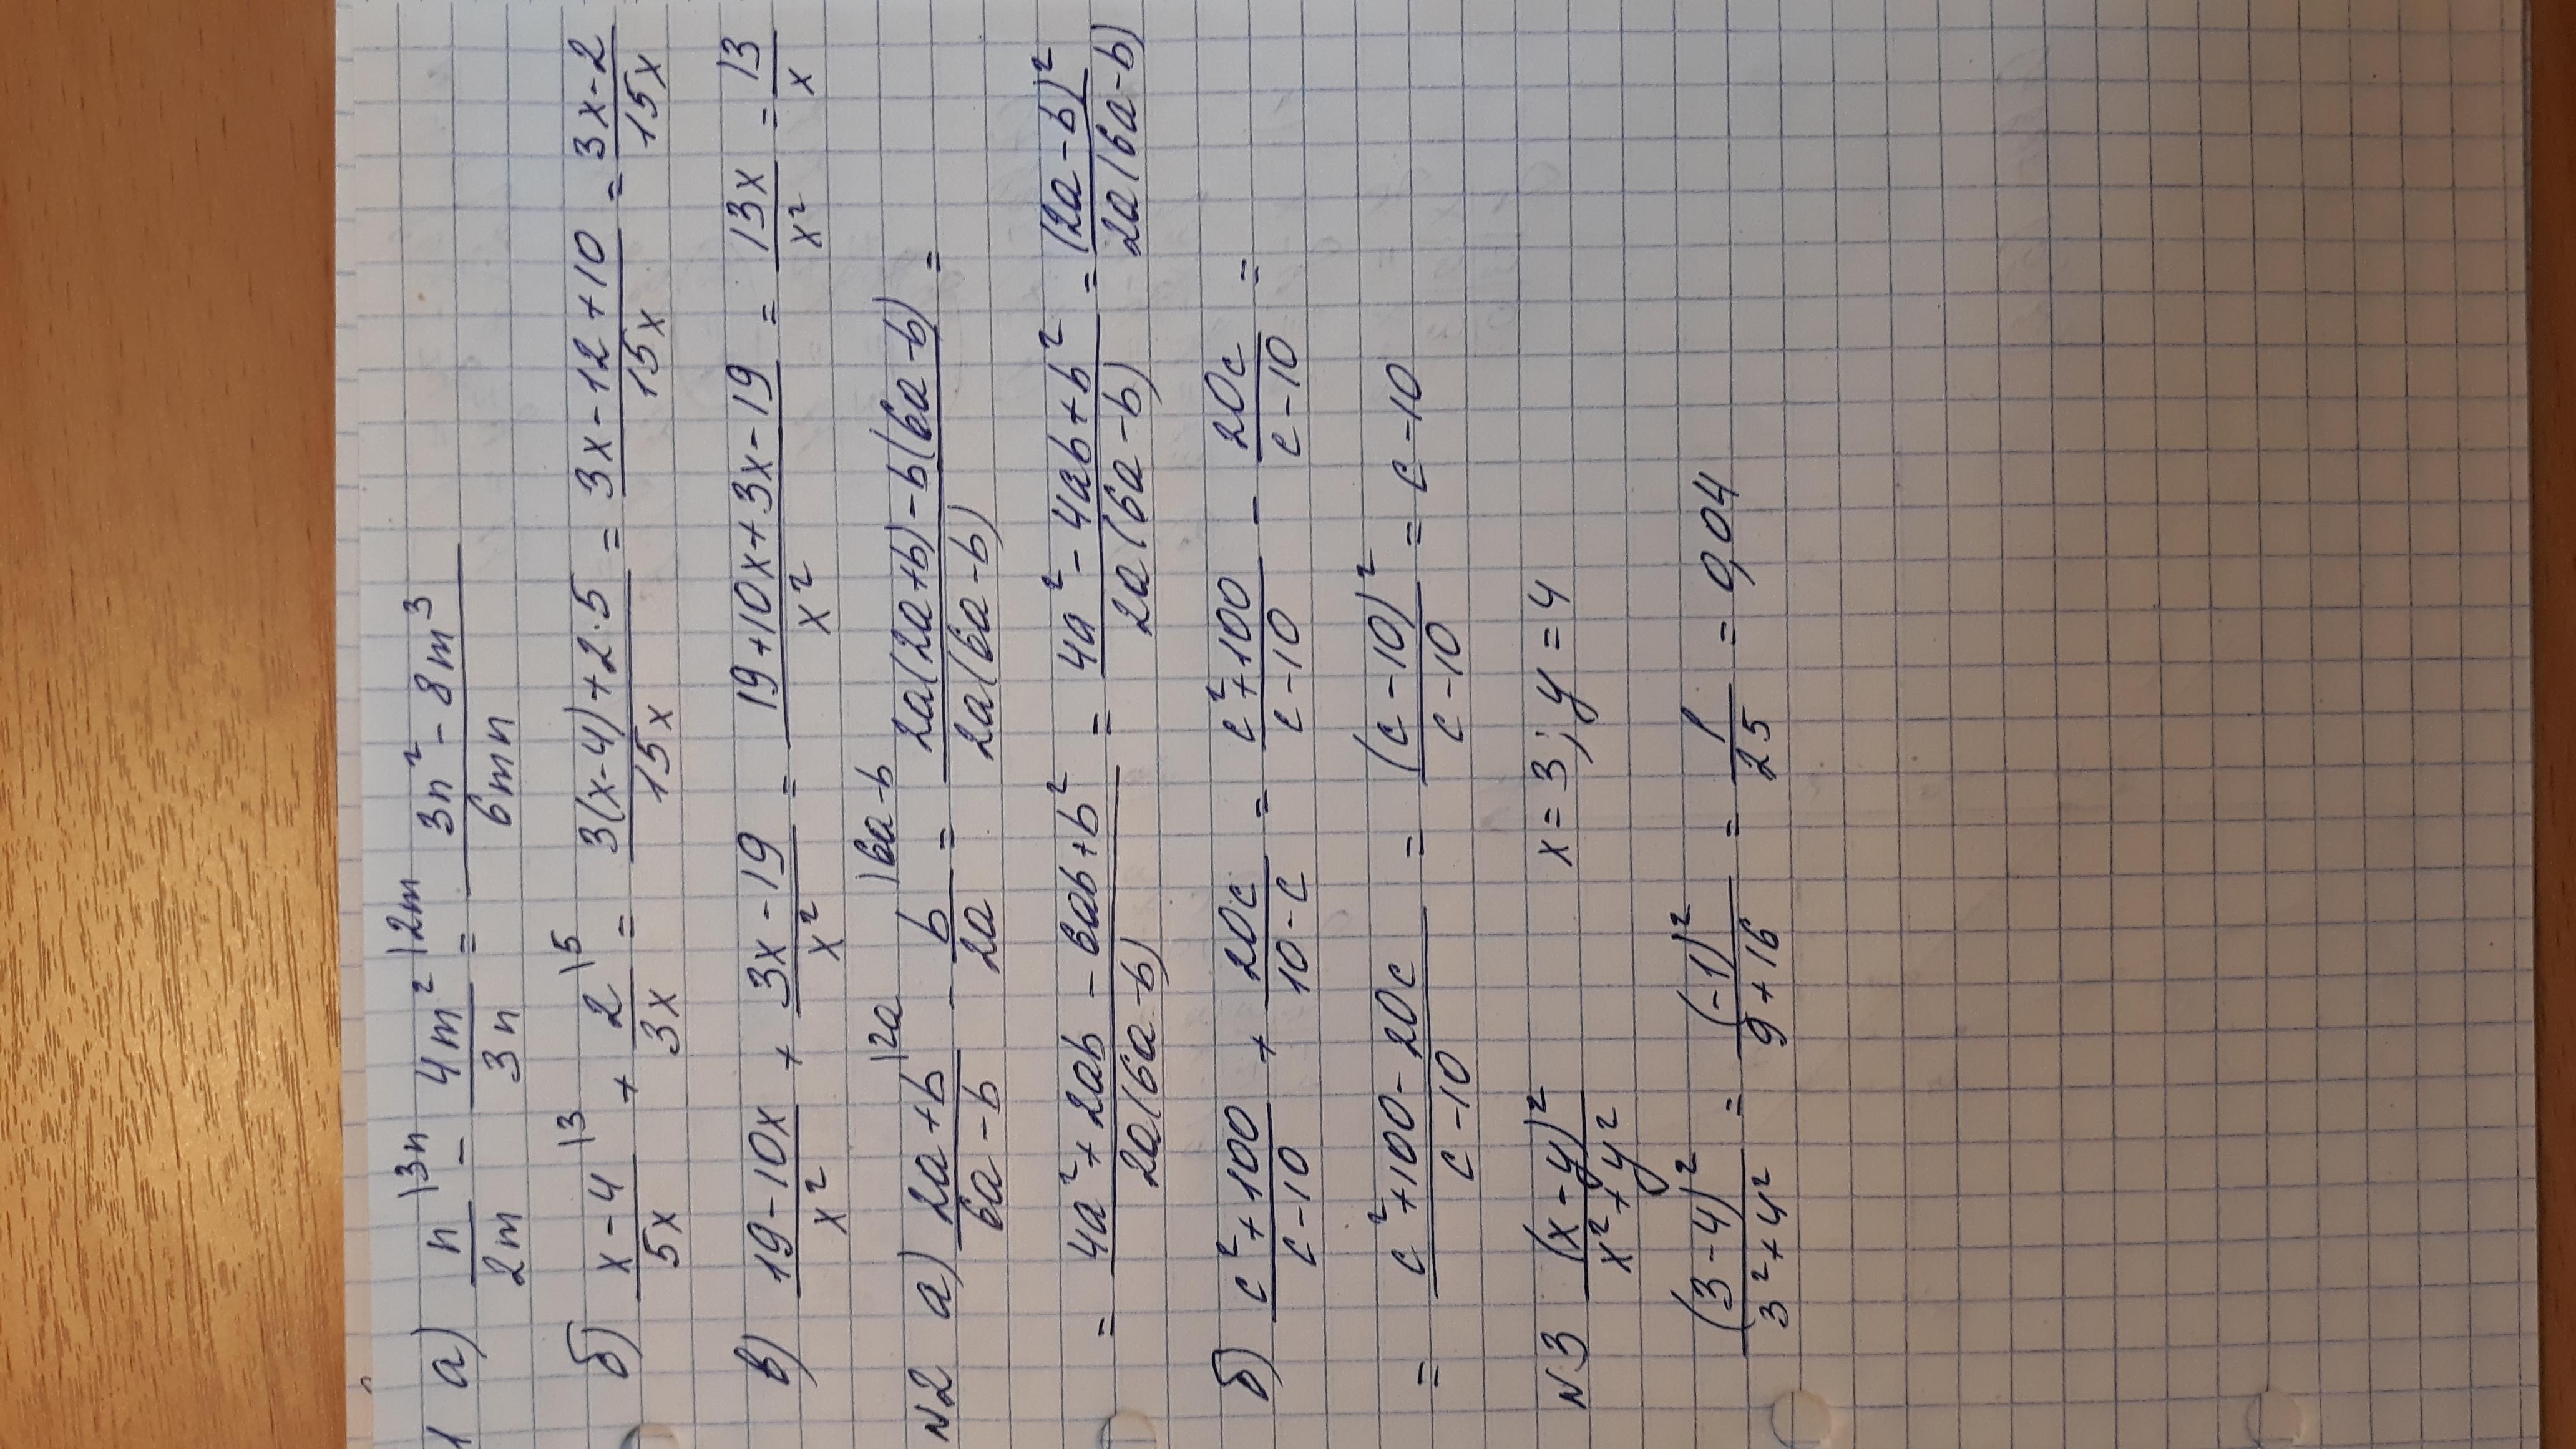 1 а) n/2m |3n - 4m²/3n |2m = (3n² - 8m³)/6mn
б) (x-4)/5x |3 + 2/3x |5 = (3(x-4)+2·5)/15x = (3x-12+10)/15x = (3x-2)/15x
в) (19-10x)/x² + (3x-19)/x² = (19+10x+3x-19)/x² = 13x/x² = 13/x
N2 а) (2a+b)/(6a-b) |2a - b/2a |6a-b = (2a(2a+b)-b(6a-b))/(2a(6a-b)) =
= (4a²+2ab-6ab+b²)/(2a(6a-b)) = (4a²-4ab+b²)/(2a(6a-b)) = (2a-b)²/(2a(6a-b)
б) (c²+100)/(c-10) + 20c/(10-c) = (c²+100)/(c-10) - 20c/(c-10) =
= (c²+100-20c)/(c-10) = (c-10)²/(c-10) = c-10
N3 (x-y)²/(x²+y²) x=3; y=4
(3-4)²/(3²+4²) = (-1)²/(9+16) = 1/25 = 0,04